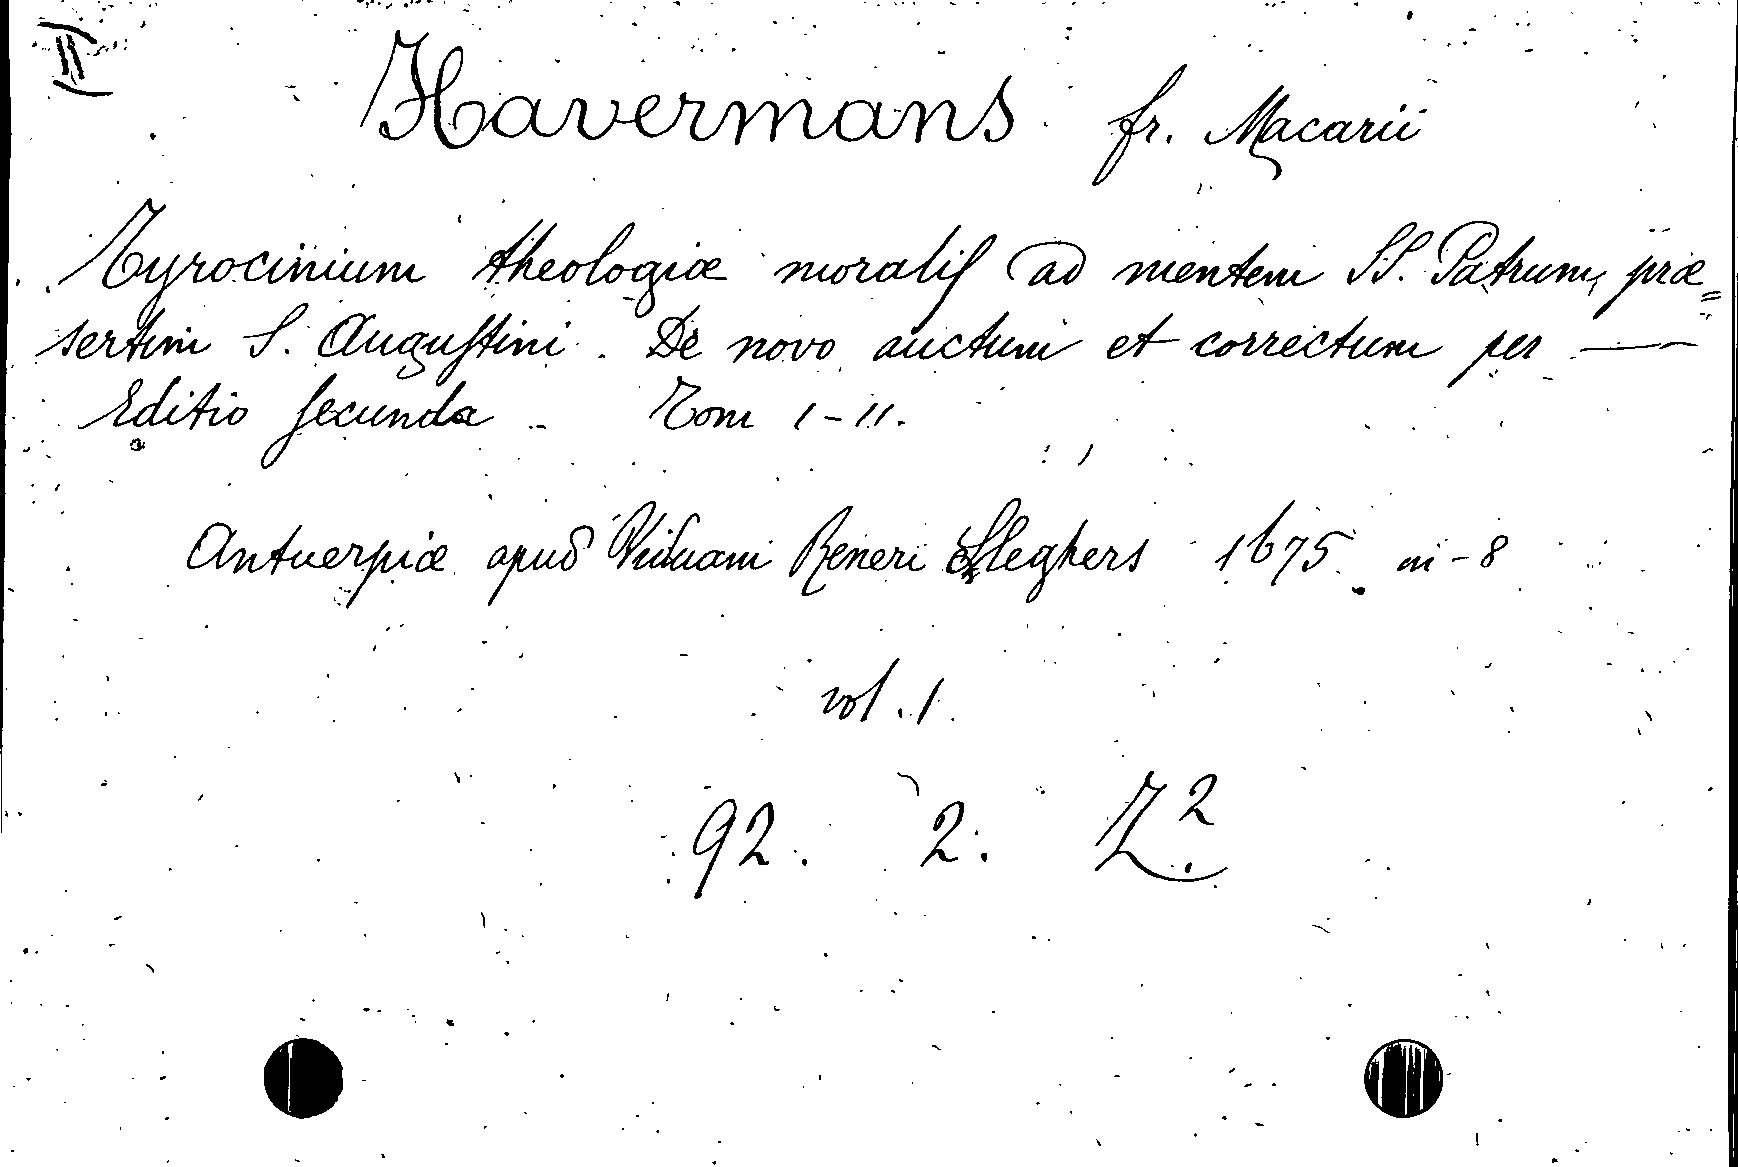 II
Havermans fr. Macarii
Tyrocinium theologiæ moralis ad mentem SS. Patrum, præ=
sertim S. Augustini. De novo auctum et correctum per —
Editio secunda Tom I-II.
Antuerpiæ apud Viduam Reneri Sleghers 1675 in-8
vol. 1.
92. 2. Z².